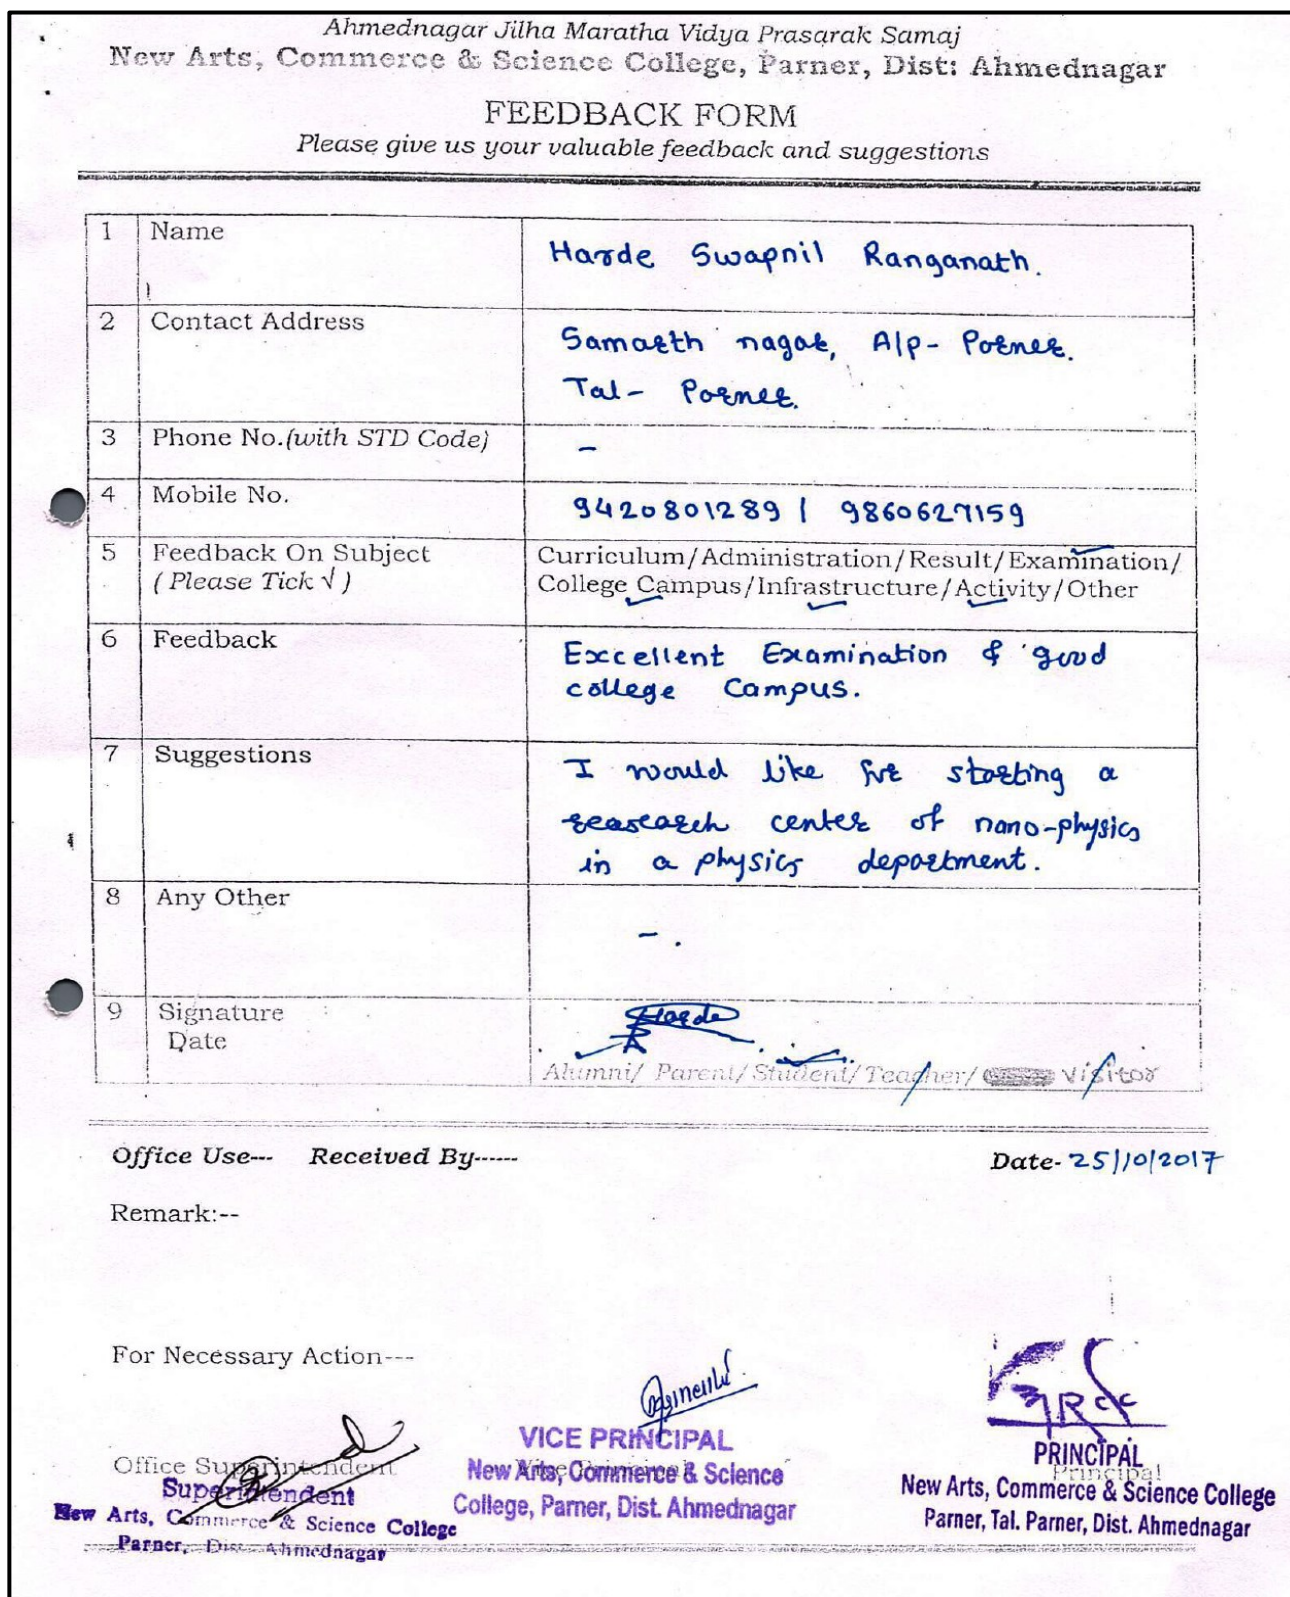 Ahmednagar Jilha Maratha Vidya Prasarak Samaj
New Arts, Commerce & Science College, Parner, Dist: Ahmednagar
FEEDBACK FORM
Please give us your valuable feedback and suggestions
1 Name Harde Swapnil Ranganath.
2 Contact Address Samarth nagar, A/p- Parner.
Tal- Parner.
3 Phone No.(with STD Code) -
4 Mobile No. 9420801289 / 9860627159
5 Feedback On Subject Curriculum/Administration/Result/Examination/
(Please Tick √) College Campus/Infrastructure/Activity/Other
6 Feedback Excellent Examination & good
college Campus.
7 Suggestions I would like for starting a
reasearch center of nano-physics
in a physics department.
8 Any Other -.
9 Signature Harde
Date
Alumni/ Parent/ Student/ Teacher/ Visitor
Office Use--- Received By------ Date- 25/10/2017
Remark:--
For Necessary Action---
Office Superintendent
Superintendent
New Arts, Commerce & Science College
Parner, Dist. Ahmednagar
VICE PRINCIPAL
Vice Principal
New Arts, Commerce & Science
College, Parner, Dist. Ahmednagar
PRINCIPAL
Principal
New Arts, Commerce & Science College
Parner, Tal. Parner, Dist. Ahmednagar